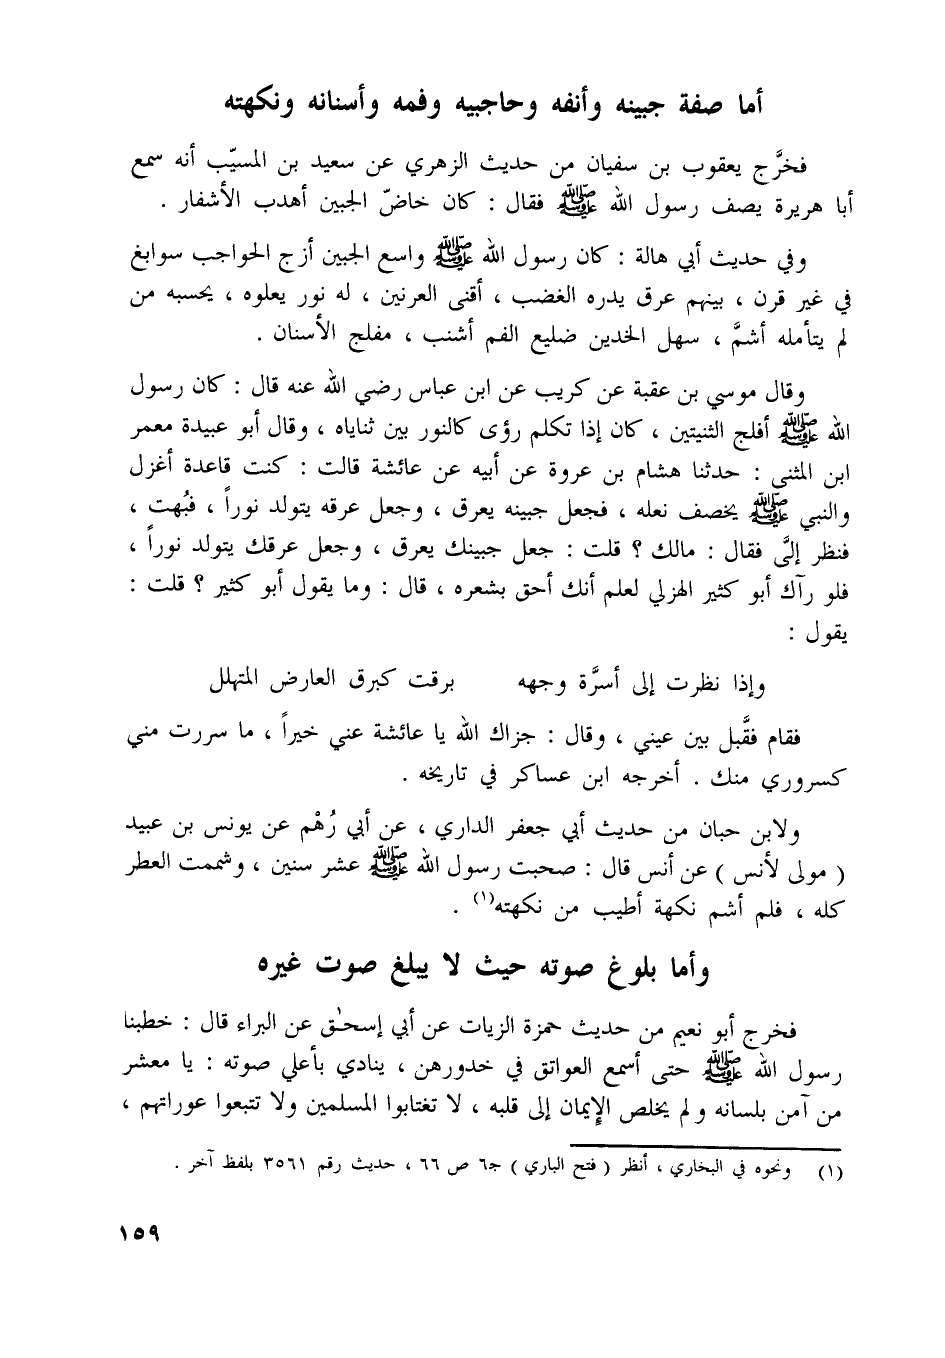 أما صفة جبينه وأنفه وحاجبيه وفمه وأسنانه ونكهته
فخرَّج يعقوب بن سفيان من حديث الزهري عن سعيد بن المسيّب أنه سمع
أبا هريرة يصف رسول الله ﷺ فقال : كان خاضّ الجبين أهدب الأشفار .
وفي حديث أبي هالة : كان رسول الله ﷺ واسع الجبين أزج الحواجب سوابغ
في غير قرن ، بينهم عرق يدره الغضب ، أقنى العرنين ، له نور يعلوه ، يحسبه من
لم يتأمله أشمَّ ، سهل الخدين ضليع الفم أشنب ، مفلج الأسنان .
وقال موسي بن عقبة عن كريب عن ابن عباس رضي الله عنه قال : كان رسول
الله ﷺ أفلج الثنيتين ، كان إذا تكلم رؤى كالنور بين ثناياه ، وقال أبو عبيدة معمر
ابن المثنى : حدثنا هشام بن عروة عن أبيه عن عائشة قالت : كنت قاعدة أغزل
والنبي ﷺ يخصف نعله ، فجعل جبينه يعرق ، وجعل عرقه يتولد نوراً ، فبُهت ،
فنظر إلىَّ فقال : مالك ؟ قلت : جعل جبينك يعرق ، وجعل عرقك يتولد نوراً ،
فلو رآك أبو كثير الهزلي لعلم أنك أحق بشعره ، قال : وما يقول أبو كثير ؟ قلت :
يقول :
وإذا نظرت إلى أسرَّة وجهه برقت كبرق العارض المتهلل
فقام فقَّبل بين عيني ، وقال : جزاك الله يا عائشة عني خيراً ، ما سررت مني
كسروري منك . أخرجه ابن عساكر في تاريخه .
ولابن حبان من حديث أبي جعفر الداري ، عن أبي رُهْم عن يونس بن عبيد
( مولى لأنس ) عن أنس قال : صحبت رسول الله ﷺ عشر سنين ، وشممت العطر
كله ، فلم أشم نكهة أطيب من نكهته(١) .
وأما بلوغ صوته حيث لا يبلغ صوت غيره
فخرج أبو نعيم من حديث حمزة الزيات عن أبي إسحـٰق عن البراء قال : خطبنا
رسول الله ﷺ حتى أسمع العواتق في خدورهن ، ينادي بأعلي صوته : يا معشر
من آمن بلسانه ولم يخلص الإيمان إلى قلبه ، لا تغتابوا المسلمين ولا تتبعوا عوراتهم ،
(١) ونحوه في البخاري ، أنظر ( فتح الباري ) جـ٦ ص ٦٦ ، حديث رقم ٣٥٦١ بلفظ آخر .
١٥٩